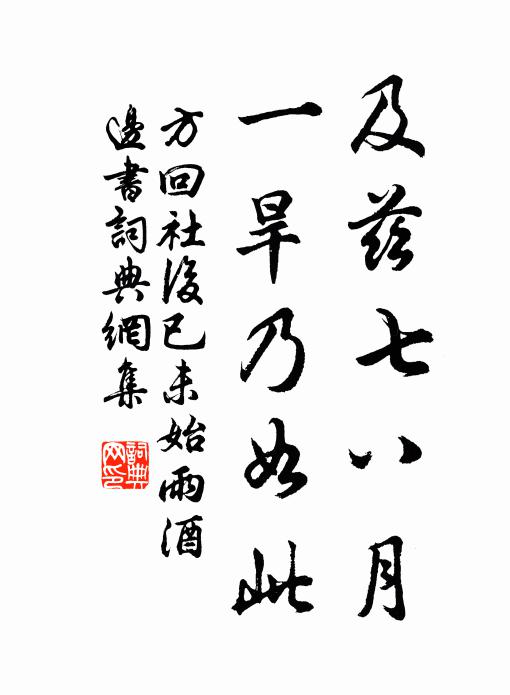 及茲七八月
一旱乃如此
方回社後己未始雨酒
邊書詞典網集
詞典網印